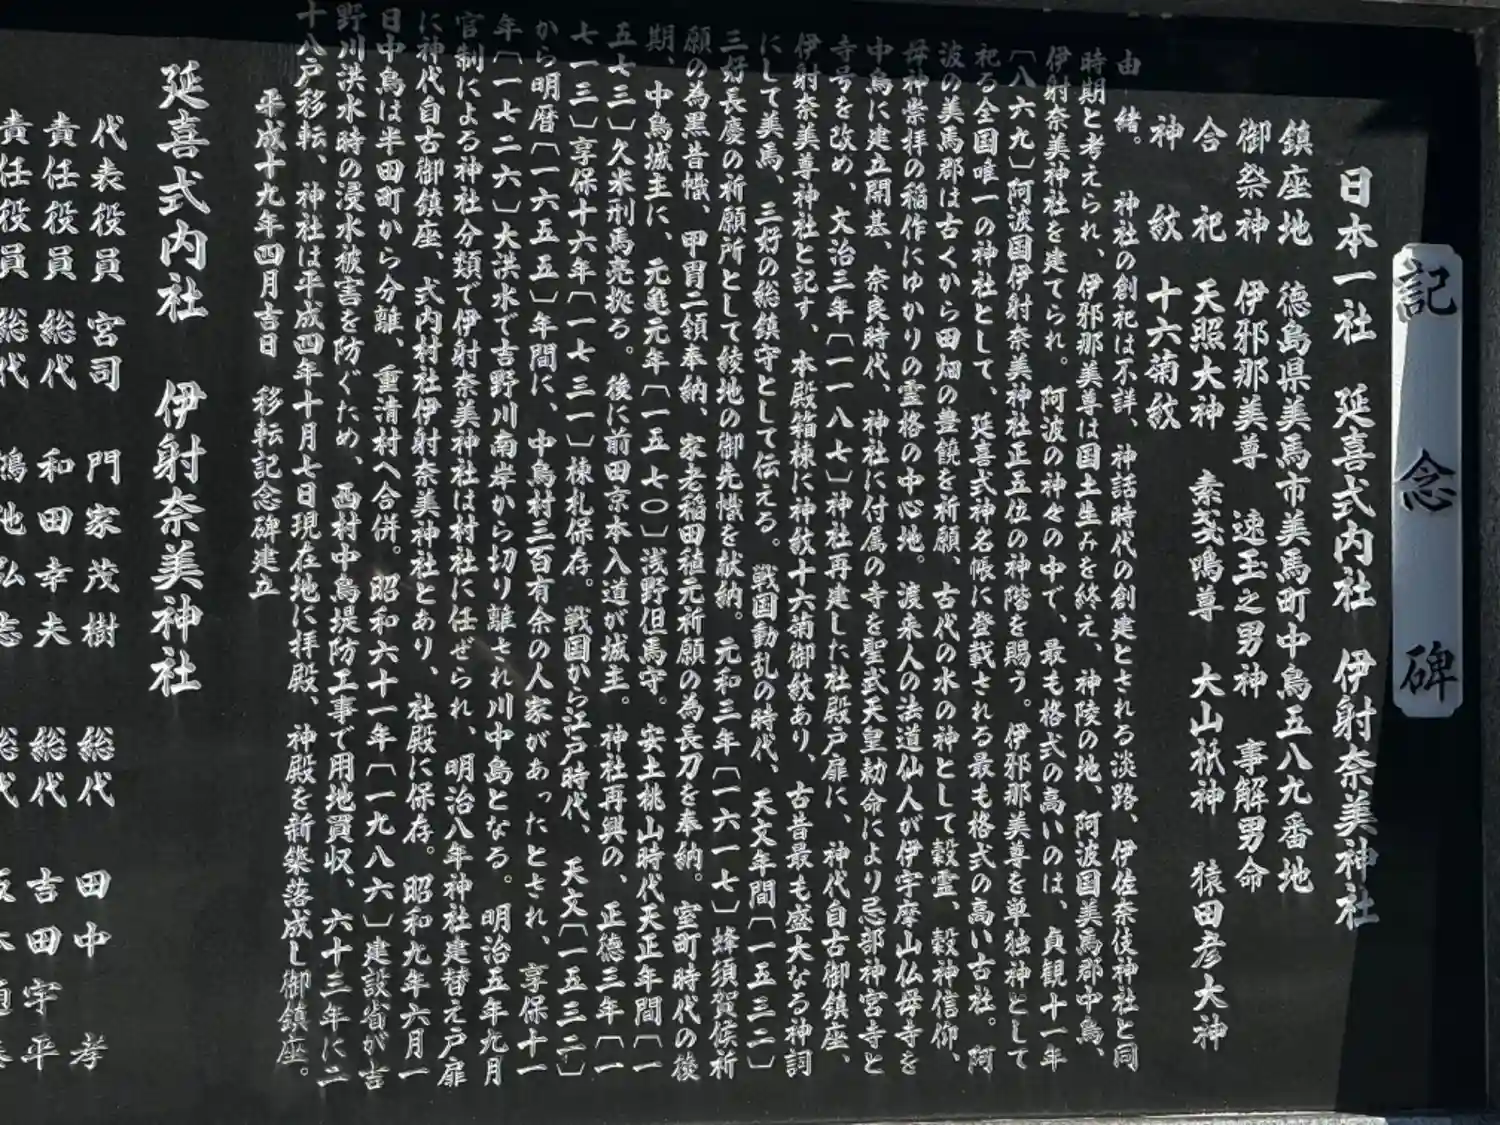 記念碑
日本一社 延喜式内社 伊射奈美神社
鎮座地 徳島県美馬市美馬町中鳥五八九番地
御祭神 伊邪那美尊 速玉之男神 事解男命
合祀 天照大神 素戔鳴尊 大山祇神 猿田彦大神
神紋 十六菊紋
由緒。 神社の創祀は不詳、神話時代の創建とされる淡路、伊佐奈伎神社と同
時期と考えられ、伊邪那美尊は国土生みを終え、神陵の地、阿波国美馬郡中鳥、
伊射奈美神社を建てられ。阿波の神々の中で、最も格式の高いのは、貞観十一年
〔八六九〕阿波国伊射奈美神社正五位の神階を賜う。伊邪那美尊を単独神として
祀る全国唯一の神社として、延喜式神名帳に登載される最も格式の高い古社。阿
波の美馬郡は古くから田畑の豊饒を祈願、古代の水の神として穀霊、穀神信仰、
母神崇拝の稲作にゆかりの霊格の中心地。渡来人の法道仙人が伊宇摩山仏母寺を
中鳥に建立開基、奈良時代、神社に付属の寺を聖武天皇勅命により忌部神宮寺と
寺号を改め、文治三年〔一一八七〕神社再建した社殿戸扉に、神代自古御鎮座、
伊射奈美尊神社と記す、本殿箱棟に神紋十六菊御紋あり、古昔最も盛大なる神詞
にして美馬、三好の総鎮守として伝える。戦国動乱の時代、天文年間〔一五三二〕
三好長慶の祈願所として綾地の御先幟を献納。元和三年〔一六一七〕蜂須賀候祈
願の為黒昔幟、甲冑二領奉納、家老稲田稙元祈願の為長刀を奉納。室町時代の後
期、中鳥城主に、元亀元年〔一五七〇〕浅野但馬守。安土桃山時代天正年間〔一
五七三〕久米刑馬亮拠る。後に前田京本入道が城主。神社再興の、正徳三年〔一
七一三〕享保十六年〔一七三一〕棟札保存。戦国から江戸時代、天文〔一五三二〕
から明暦〔一六五五〕年間に、中鳥村三百有余の人家があったとされ、享保十一
年〔一七二六〕大洪水で吉野川南岸から切り離され川中島となる。明治五年九月
官制による神社分類で伊射奈美神社は村社に任ぜられ、明治八年神社建替え戸扉
に神代自古御鎮座、式内村社伊射奈美神社とあり、社殿に保存。昭和九年六月一
日中鳥は半田町から分離、重清村へ合併。昭和六十一年〔一九八六〕建設省が吉
野川洪水時の浸水被害を防ぐため、西村中鳥堤防工事で用地買収、六十三年に二
十八戸移転、神社は平成四年十月七日現在地に拝殿、神殿を新築落成し御鎮座。
平成十九年四月吉日 移転記念碑建立
延喜式内社 伊射奈美神社
代表役員 宮司 門家茂樹 総代 田中 孝
責任役員 総代 和田幸夫 総代 吉田宇平
責任役員 総代 鴻池弘志 総代